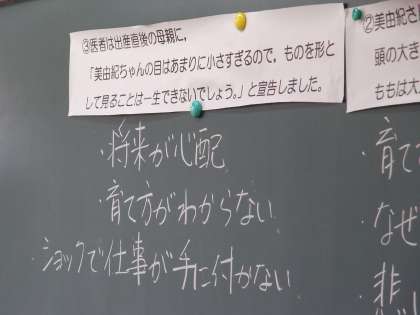 ③医者は出産直後の母親に，
「美由紀ちゃんの目はあまりに小さすぎるので，ものを形と
して見ることは一生できないでしょう。」と宣告しました。
・将来が心配
・育て方がわからない
・ショックで仕事が手に付かない
②美由紀さ
頭の大き
ももは大
・育て
・なぜ
・悲し